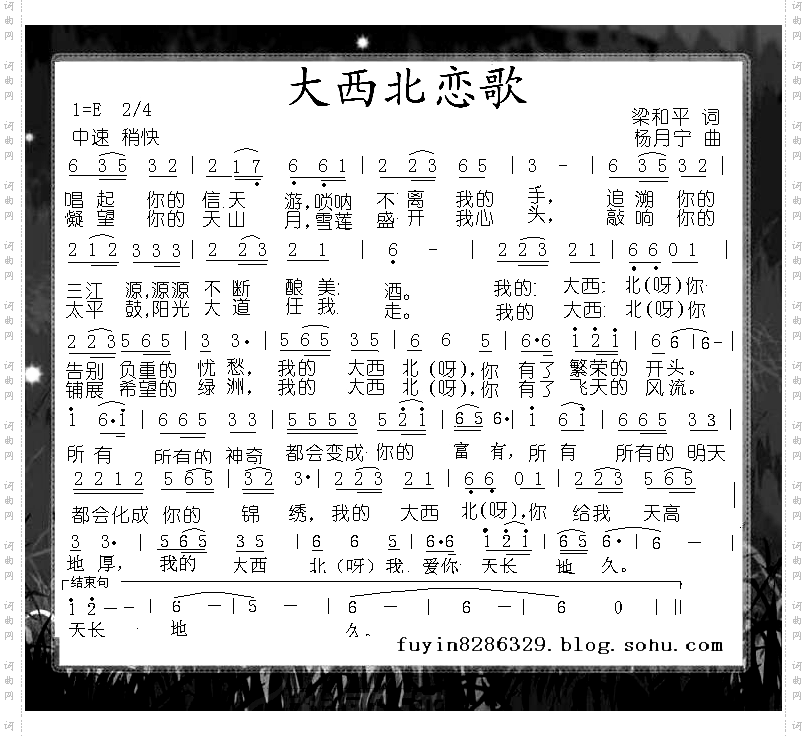 大西北恋歌
1=E 2/4
梁和平 词
中速 稍快
杨月宁 曲
6 3 5 3 2 | 2 1 7 6 6 1 | 2 2 3 6 5 | 3 - | 6 3 5 3 2 |
唱起 你的 信天 游,唢呐 不离 我的 手, 追溯 你的
凝望 你的 天山 月,雪莲 盛开 我心 头, 敲响 你的
2 1 2 3 3 3 | 2 2 3 2 1 | 6 - | 2 2 3 2 1 | 6 6 0 1 |
三江 源,源源 不断 酿美: 酒。 我的: 大西: 北(呀)你
太平 鼓,阳光 大道 任我 走。 我的: 大西: 北(呀)你
2 2 3 5 6 5 | 3 3· | 5 6 5 3 5 | 6 6 5 | 6·6 1 2 1 | 6 6 | 6- |
告别 负重的 忧愁, 我的 大西 北(呀),你 有了 繁荣的 开头。
铺展 希望的 绿洲, 我的 大西 北(呀),你 有了 飞天的 风流。
1 6·1 | 6 6 5 3 3 | 5 5 5 3 5 2 1 | 6 5 6· | 1 6 1 | 6 6 5 3 3 |
所有 所有的 神奇 都会变成 你的 富有,所有 所有的 明天
2 2 1 2 5 6 5 | 3 2 3· | 2 2 3 2 1 | 6 6 0 1 | 2 2 3 5 6 5 |
都会化成 你的 锦绣, 我的 大西 北(呀),你 给我 天高
3 3· | 5 6 5 3 5 | 6 6 5 | 6·6 1 2 1 | 6 5 6· | 6 - |
地厚, 我的 大西 北(呀)我 爱你 天长 地久。
结束句
1 2 - - | 6 - | 5 - | 6 - | 6 - | 6 0 ||
天长 地 久。
fuyin8286329.blog.sohu.com
词曲网
词曲网
词曲网
词曲网
词曲网
词曲网
词曲网
词曲网